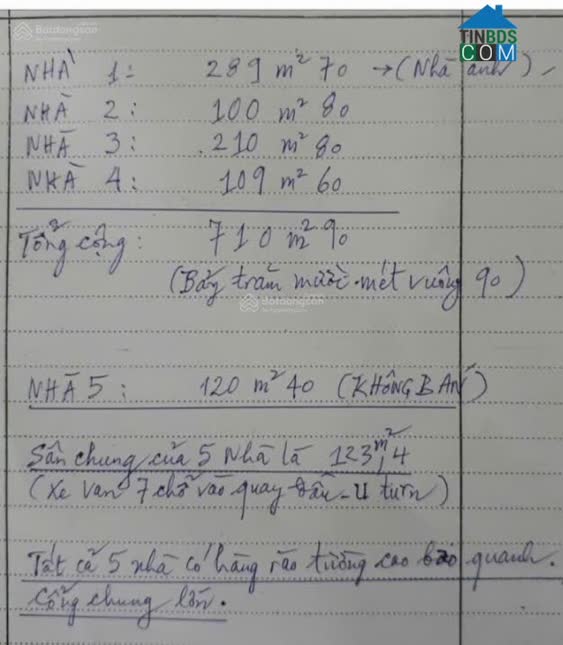 Batdongsan
TINBDS
COM
NHÀ 1: 289 m² 70 → (Nhà anh)
NHÀ 2: 100 m² 80
NHÀ 3: 210 m² 80
NHÀ 4: 109 m² 60
Tổng cộng: 710 m² 90
(Bảy trăm mười mét vuông 90)
batdongsan
NHÀ 5: 120 m² 40 (KHÔNG BÁN)
Sân chung của 5 Nhà là 123,4 m²
(Xe van 7 chỗ vào quay đầu - U turn)
Tất cả 5 nhà có hàng rào tường cao bao quanh.
Cổng chung lớn.